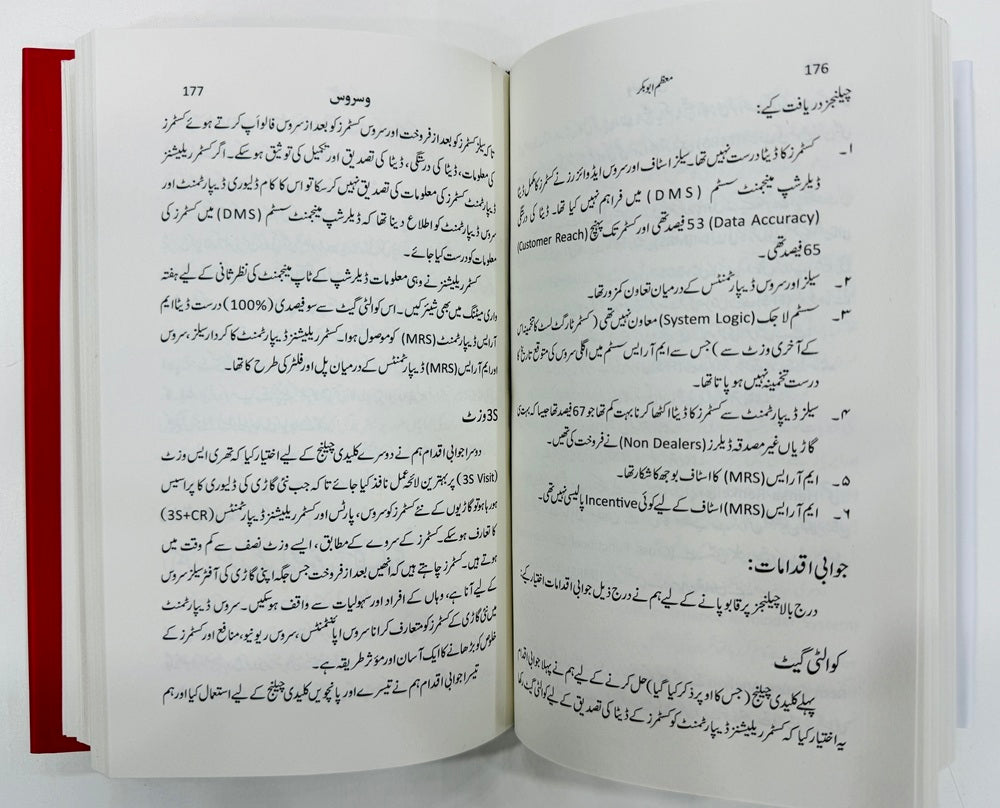 176
معظم ابوبکر
چیلنجز دریافت کیے:
۱۔ کسٹمرز کا ڈیٹا درست نہیں تھا۔ سیلز اسٹاف اور سروس ایڈوائزرز نے کسٹمرز کا مکمل ڈیٹا
ڈیلرشپ مینجمنٹ سسٹم (DMS) میں فراہم نہیں کیا تھا۔ ڈیٹا کی درستگی
(Data Accuracy) 53 فیصد تھی اور کسٹمر تک پہنچ (Customer Reach)
65 فیصد تھی۔
۲۔ سیلز اور سروس ڈیپارٹمنٹس کے درمیان تعاون کمزور تھا۔
۳۔ سسٹم لاجک (System Logic) معاون نہیں تھی (کسٹمر ٹارگٹ لسٹ کا تخمینہ اس
کے آخری وزٹ سے) جس سے ایم آر ایس سسٹم میں اگلی سروس کی متوقع تاریخ کا
درست تخمینہ نہیں ہو پاتا تھا۔
۴۔ سیلز ڈیپارٹمنٹ سے کسٹمرز کا ڈیٹا اکٹھا کرنا بہت کم تھا جو 67 فیصد تھا جیسا کہ بہت سی
گاڑیاں غیر مصدقہ ڈیلرز (Non Dealers) نے فروخت کی تھیں۔
۵۔ ایم آر ایس (MRS) کا اسٹاف بوجھ کا شکار تھا۔
۶۔ ایم آر ایس (MRS) اسٹاف کے لیے کوئی Incentive پالیسی نہیں تھی۔
جوابی اقدامات:
درج بالا چیلنجز پر قابو پانے کے لیے ہم نے درج ذیل جوابی اقدامات اختیار کیے:
کوالٹی گیٹ
پہلے کلیدی چیلنج (جس کا اوپر ذکر کیا گیا) حل کرنے کے لیے ہم نے پہلا جوابی اقدام
یہ اختیار کیا کہ کسٹمر ریلیشنز ڈیپارٹمنٹ کو کسٹمرز کے ڈیٹا کی تصدیق کے لیے کوالٹی گیٹ رکھا
177
وسروس
تاکہ سیلز کسٹمرز کو بعد از فروخت اور سروس کسٹمرز کو بعد از سروس فالو اَپ کرتے ہوئے کسٹمرز
کی معلومات، ڈیٹا کی درستگی، ڈیٹا کی تصدیق اور تکمیل کی توثیق ہو سکے۔ اگر کسٹمر ریلیشنز
ڈیپارٹمنٹ کسٹمرز کی معلومات کی تصدیق نہیں کر سکا تو اس کا کام ڈلیوری ڈیپارٹمنٹ اور
سروس ڈیپارٹمنٹ کو اطلاع دینا تھا کہ ڈیلرشپ مینجمنٹ سسٹم (DMS) میں کسٹمرز کی
معلومات کو درست کیا جائے۔
کسٹمر ریلیشنز نے وہی معلومات ڈیلرشپ کے ٹاپ مینجمنٹ کی نظر ثانی کے لیے ہفتہ
واری میٹنگ میں بھی شیئر کیں۔ اس کوالٹی گیٹ سے سو فیصدی (100%) درست ڈیٹا ایم
آر ایس ڈیپارٹمنٹ (MRS) کو موصول ہوا۔ کسٹمر ریلیشنز ڈیپارٹمنٹ کا کردار سیلز، سروس
اور ایم آر ایس (MRS) ڈیپارٹمنٹس کے درمیان پل اور فلٹر کی طرح کا تھا۔
3S وزٹ
دوسرا جوابی اقدام ہم نے دوسرے کلیدی چیلنج کے لیے اختیار کیا کہ تھری ایس وزٹ
(3S Visit) پر بہترین لائحہ عمل نافذ کیا جائے تاکہ جب نئی گاڑی کی ڈلیوری کا پراسیس
ہو رہا ہو تو گاڑیوں کے نئے کسٹمرز کو سروس، پارٹس اور کسٹمر ریلیشنز ڈیپارٹمنٹس (3S+CR)
کا تعارف ہو سکے۔ کسٹمرز کے سروے کے مطابق، ایسے وزٹ نصف سے کم وقت میں
ہوتے ہیں۔ کسٹمرز چاہتے ہیں کہ انھیں بعد از فروخت جس جگہ اپنی گاڑی کی آفٹر سیلز سروس
کے لیے آنا ہے، وہاں کے افراد اور سہولیات سے واقف ہو سکیں۔ سروس ڈیپارٹمنٹ
میں نئی گاڑی کے کسٹمرز کو متعارف کرانا سروس اپائنٹمنٹس، سروس ریونیو، منافع اور کسٹمرز کے
خلوص کو بڑھانے کا ایک آسان اور مؤثر طریقہ ہے۔
تیسرا جوابی اقدام ہم نے تیسرے اور پانچویں کلیدی چیلنج کے لیے استعمال کیا اور ہم